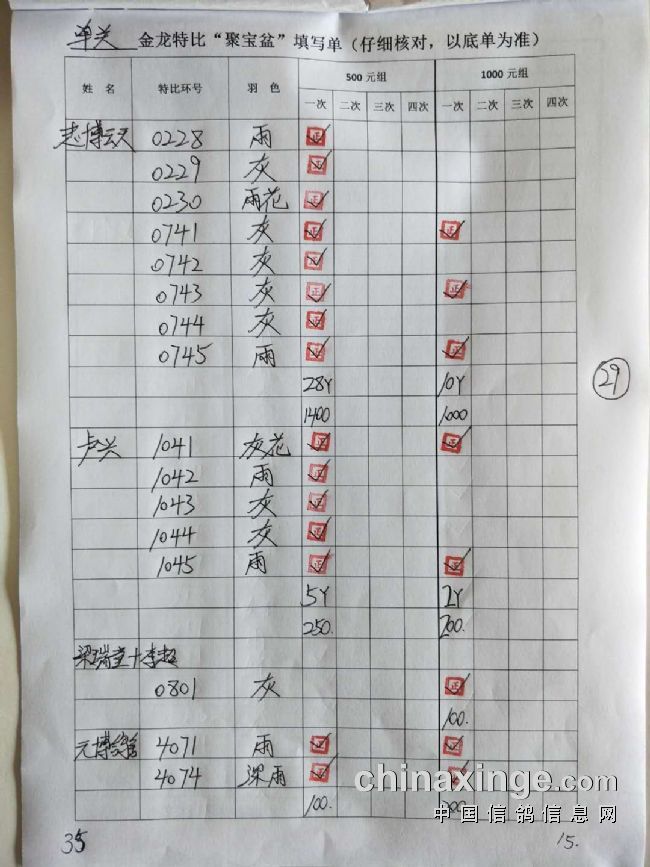 单关 金龙特比“聚宝盆”填写单（仔细核对，以底单为准）
姓 名 特比环号 羽 色 500 元组 1000 元组
一次 二次 三次 四次 一次 二次 三次 四次
志博云天 0228 雨 正
0229 灰 正
0230 雨花 正
0741 灰 正 正
0742 灰 正
0743 灰 正 正
0744 灰 正
0745 雨 正 正
28Y 10Y
1400 1000
卢兴 1041 灰花 正 正
1042 雨 正
1043 灰 正
1044 灰 正
1045 雨 正 正
5Y 2Y
250. 200.
梁瑞 十李超
0801 灰 正
100.
元博 4071 雨 正 正
4074 深雨 正 正
100.
29
35 15.
chinaxinge.com
中国信鸽信息网